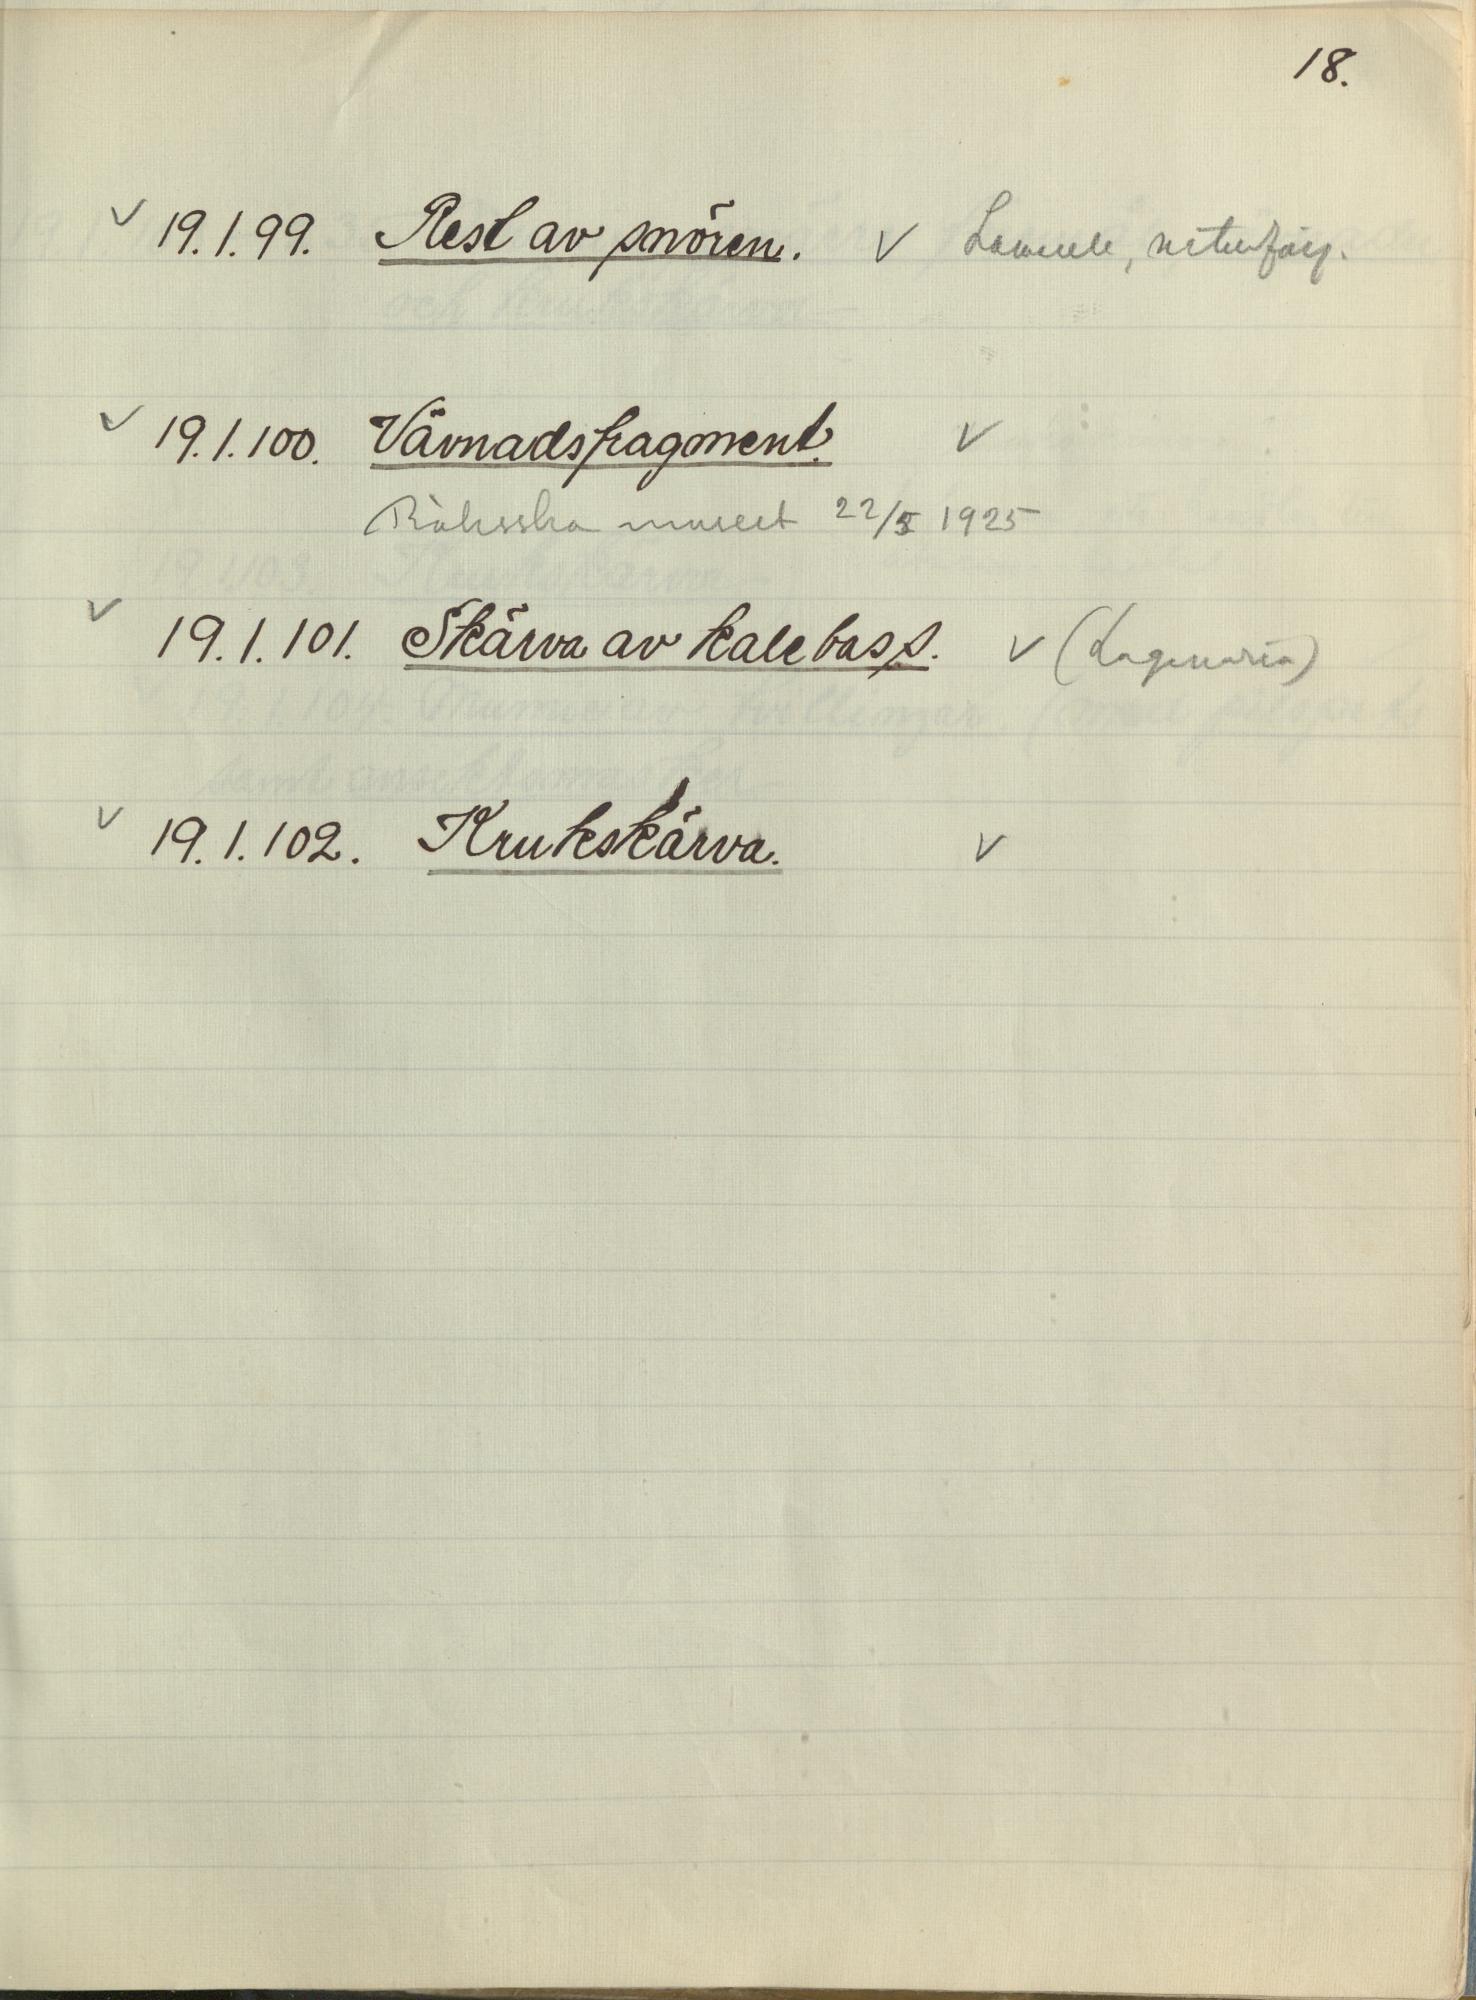 18.
✓ 19.1.99. Rest av snören. ✓ Lamull, naturfärg.
✓ 19.1.100. Vävnadsfragment. ✓
Röhsska museet 22/5 1925
✓ 19.1.101. Skärva av kalebass. ✓ (Lagenaria)
✓ 19.1.102. Krukskärva. ✓